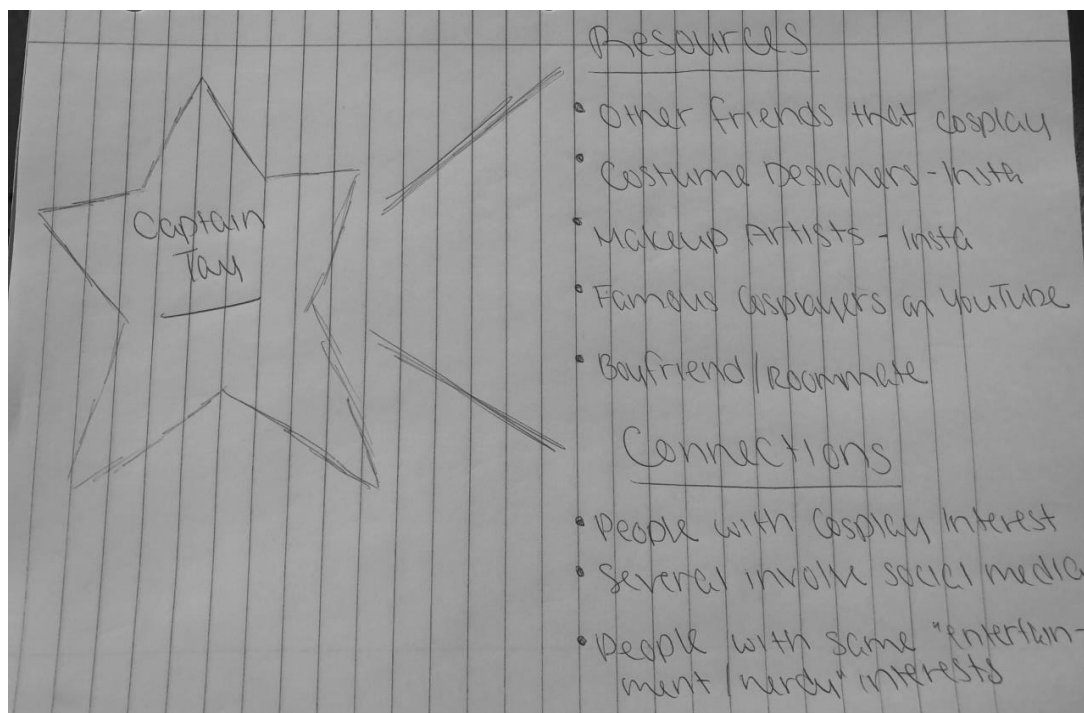 Captain
Tay
Resources
• Other friends that cosplay
• Costume Designers - Insta
• Makeup Artists - Insta
• Famous Cosplayers on YouTube
• Boyfriend/Roommate
Connections
• People with Cosplay Interest
• Several involve social media
• People with same "entertain-
ment/nerdy" interests